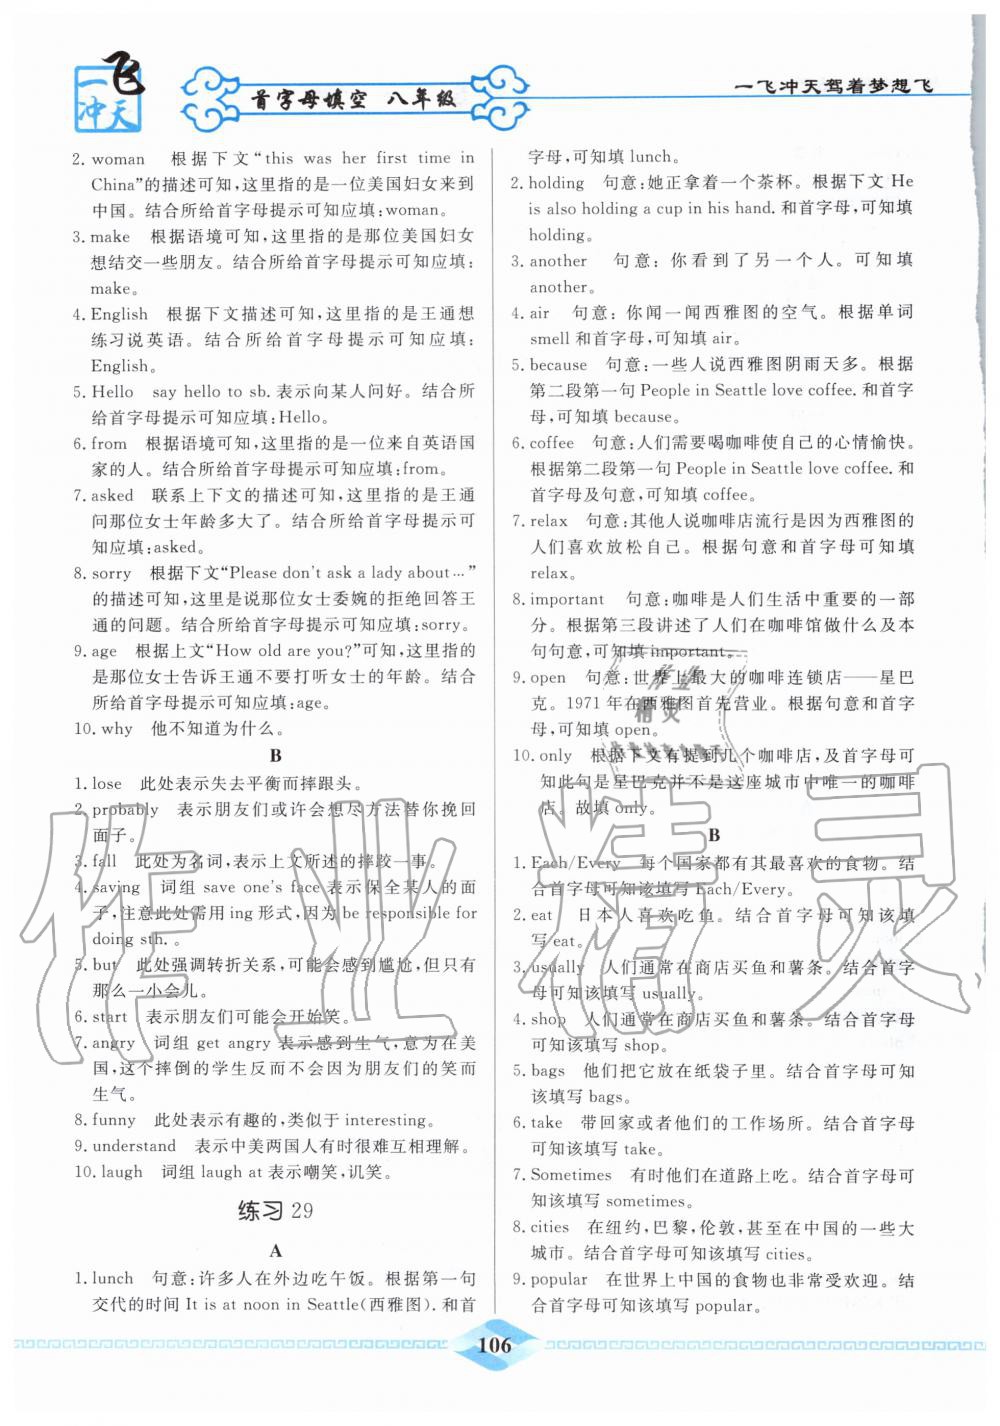 一飞冲天
首字母填空 八年级
一飞冲天驾着梦想飞
2. woman 根据下文“this was her first time in
China”的描述可知,这里指的是一位美国妇女来到
中国。结合所给首字母提示可知应填:woman。
3. make 根据语境可知,这里指的是那位美国妇女
想结交一些朋友。结合所给首字母提示可知应填:
make。
4. English 根据下文描述可知,这里指的是王通想
练习说英语。结合所给首字母提示可知应填:
English。
5. Hello say hello to sb. 表示向某人问好。结合所
给首字母提示可知应填:Hello。
6. from 根据语境可知,这里指的是来自英语国
家的人。结合所给首字母提示可知应填:from。
7. asked 联系上下文的描述可知,这里指的是王通
问那位女士年龄多大了。结合所给首字母提示可
知应填:asked。
8. sorry 根据下文“Please don't ask a lady about…”
的描述可知,这里是说那位女士委婉的拒绝回答王
通的问题。结合所给首字母提示可知应填:sorry。
9. age 根据上文“How old are you?”可知,这里指的
是那位女士告诉王通不要打听女士的年龄。结合
所给首字母提示可知应填:age。
10. why 他不知道为什么。
B
1. lose 此处表示失去平衡而摔跟头。
2. probably 表示朋友们或许会想尽方法替你挽回
面子。
3. fall 此处为名词,表示上文所述的摔跤一事。
4. saving 词组 save one's face 表示保全某人的面
子,注意此处需用 ing 形式,因为 be responsible for
doing sth. 。
5. but 此处强调转折关系,可能会感到尴尬,但只有
那么一小会儿。
6. start 表示朋友们可能会开始笑。
7. angry 词组 get angry 表示感到生气,意为在美
国,这个摔倒的学生反而不会因为朋友们的笑而
生气。
8. funny 此处表示有趣的,类似于 interesting。
9. understand 表示中美两国人有时很难互相理解。
10. laugh 词组 laugh at 表示嘲笑,讥笑。
练习 29
A
1. lunch 句意:许多人在外边吃午饭。根据第一句
交代的时间 It is at noon in Seattle(西雅图). 和首
字母,可知填 lunch。
2. holding 句意:她正拿着一个茶杯。根据下文 He
is also holding a cup in his hand. 和首字母,可知填
holding。
3. another 句意:你看到了另一个人。可知填
another。
4. air 句意:你闻一闻西雅图的空气。根据单词
smell 和首字母,可知填 air。
5. because 句意:一些人说西雅图阴雨天多。根据
第二段第一句 People in Seattle love coffee. 和首字
母,可知填 because。
6. coffee 句意:人们需要喝咖啡使自己的心情愉快。
根据第二段第一句 People in Seattle love coffee. 和
首字母及句意,可知填 coffee。
7. relax 句意:其他人说咖啡店流行是因为西雅图的
人们喜欢放松自己。根据句意和首字母可知填
relax。
8. important 句意:咖啡是人们生活中重要的一部
分。根据第三段讲述了人们在咖啡馆做什么及本
句句意,可知填 important。
9. open 句意:世界上最大的咖啡连锁店——星巴
克。1971 年在西雅图首先营业。根据句意和首字
母,可知填 open。
10. only 根据下文有提到几个咖啡店,及首字母可
知此句是星巴克并不是这座城市中唯一的咖啡
店。故填 only。
B
1. Each/Every 每个国家都有其最喜欢的食物。结
合首字母可知该填写 Each/Every。
2. eat 日本人喜欢吃鱼。结合首字母可知该填
写 eat。
3. usually 人们通常在商店买鱼和薯条。结合首字
母可知该填写 usually。
4. shop 人们通常在商店买鱼和薯条。结合首字母
可知该填写 shop。
5. bags 他们把它放在纸袋子里。结合首字母可知
该填写 bags。
6. take 带回家或者他们的工作场所。结合首字母
可知该填写 take。
7. Sometimes 有时他们在道路上吃。结合首字母可
知该填写 sometimes。
8. cities 在纽约,巴黎,伦敦,甚至在中国的一些大
城市。结合首字母可知该填写 cities。
9. popular 在世界上中国的食物也非常受欢迎。结
合首字母可知该填写 popular。
106
作业精灵
作业
精灵